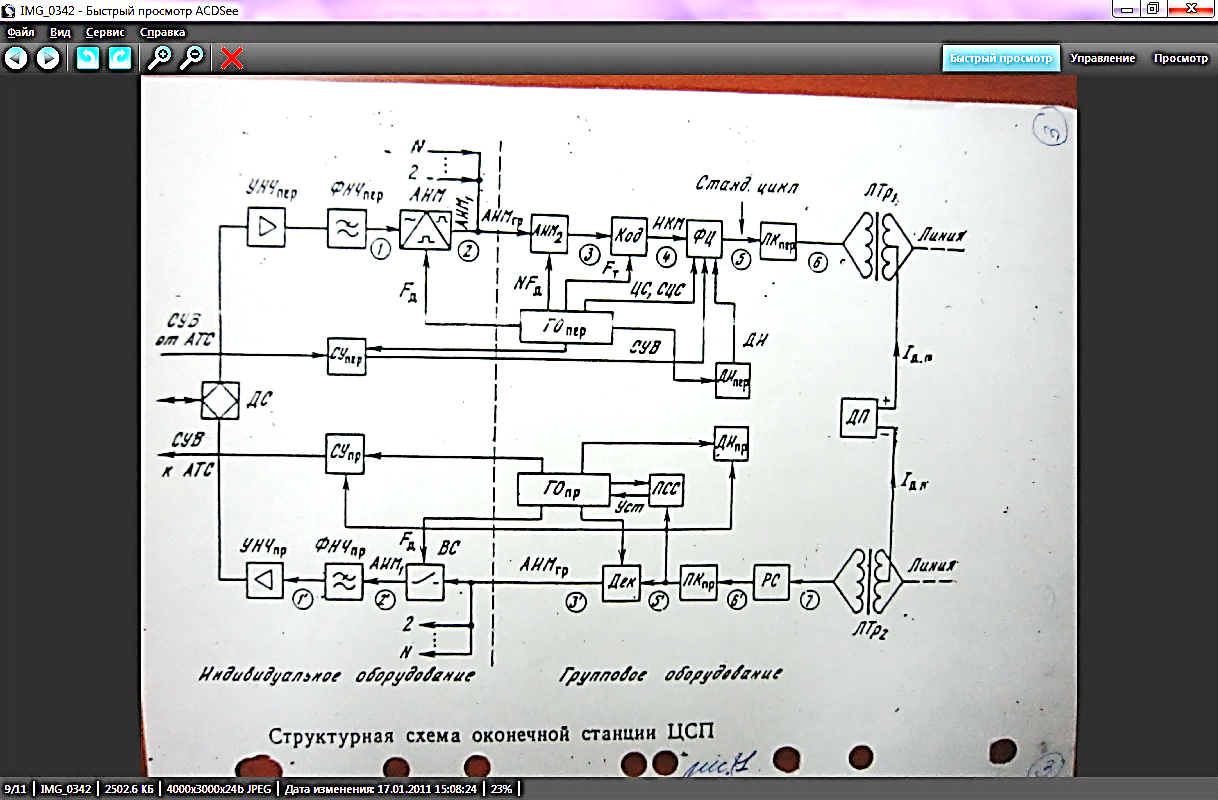 IMG_0342 - Быстрый просмотр ACDSee
Файл Вид Сервис Справка
Быстрый просмотр Управление Просмотр
3
N
2
УНЧпер ФНЧпер АИМ АИМ1 АИМгр АИМ2 Код ИКМ ФЦ Станд. цикл ПКпер ЛТр1 Линия
1 2 3 4 5 6
Fд NFд Fт ЦС, СЦС
ГОпер
СУВ ДИ
СУВ
от АТС
СУпер ДИпер
Iд.п
ДС
ДП
+
−
СУВ
к АТС
СУпр ДИпр
ГОпр ПСС
Уст
Iд.п
Fд
УНЧпр ФНЧпр АИМ1 ВС АИМгр Дек ПКпр РС Линия
1' 2' 3' 5' 6' 7
ЛТр2
2
N
Индивидуальное оборудование Групповое оборудование
Структурная схема оконечной станции ЦСП
рис.1
3
9/11 IMG_0342 2502.6 КБ 4000x3000x24b JPEG Дата изменения: 17.01.2011 15:08:24 23%